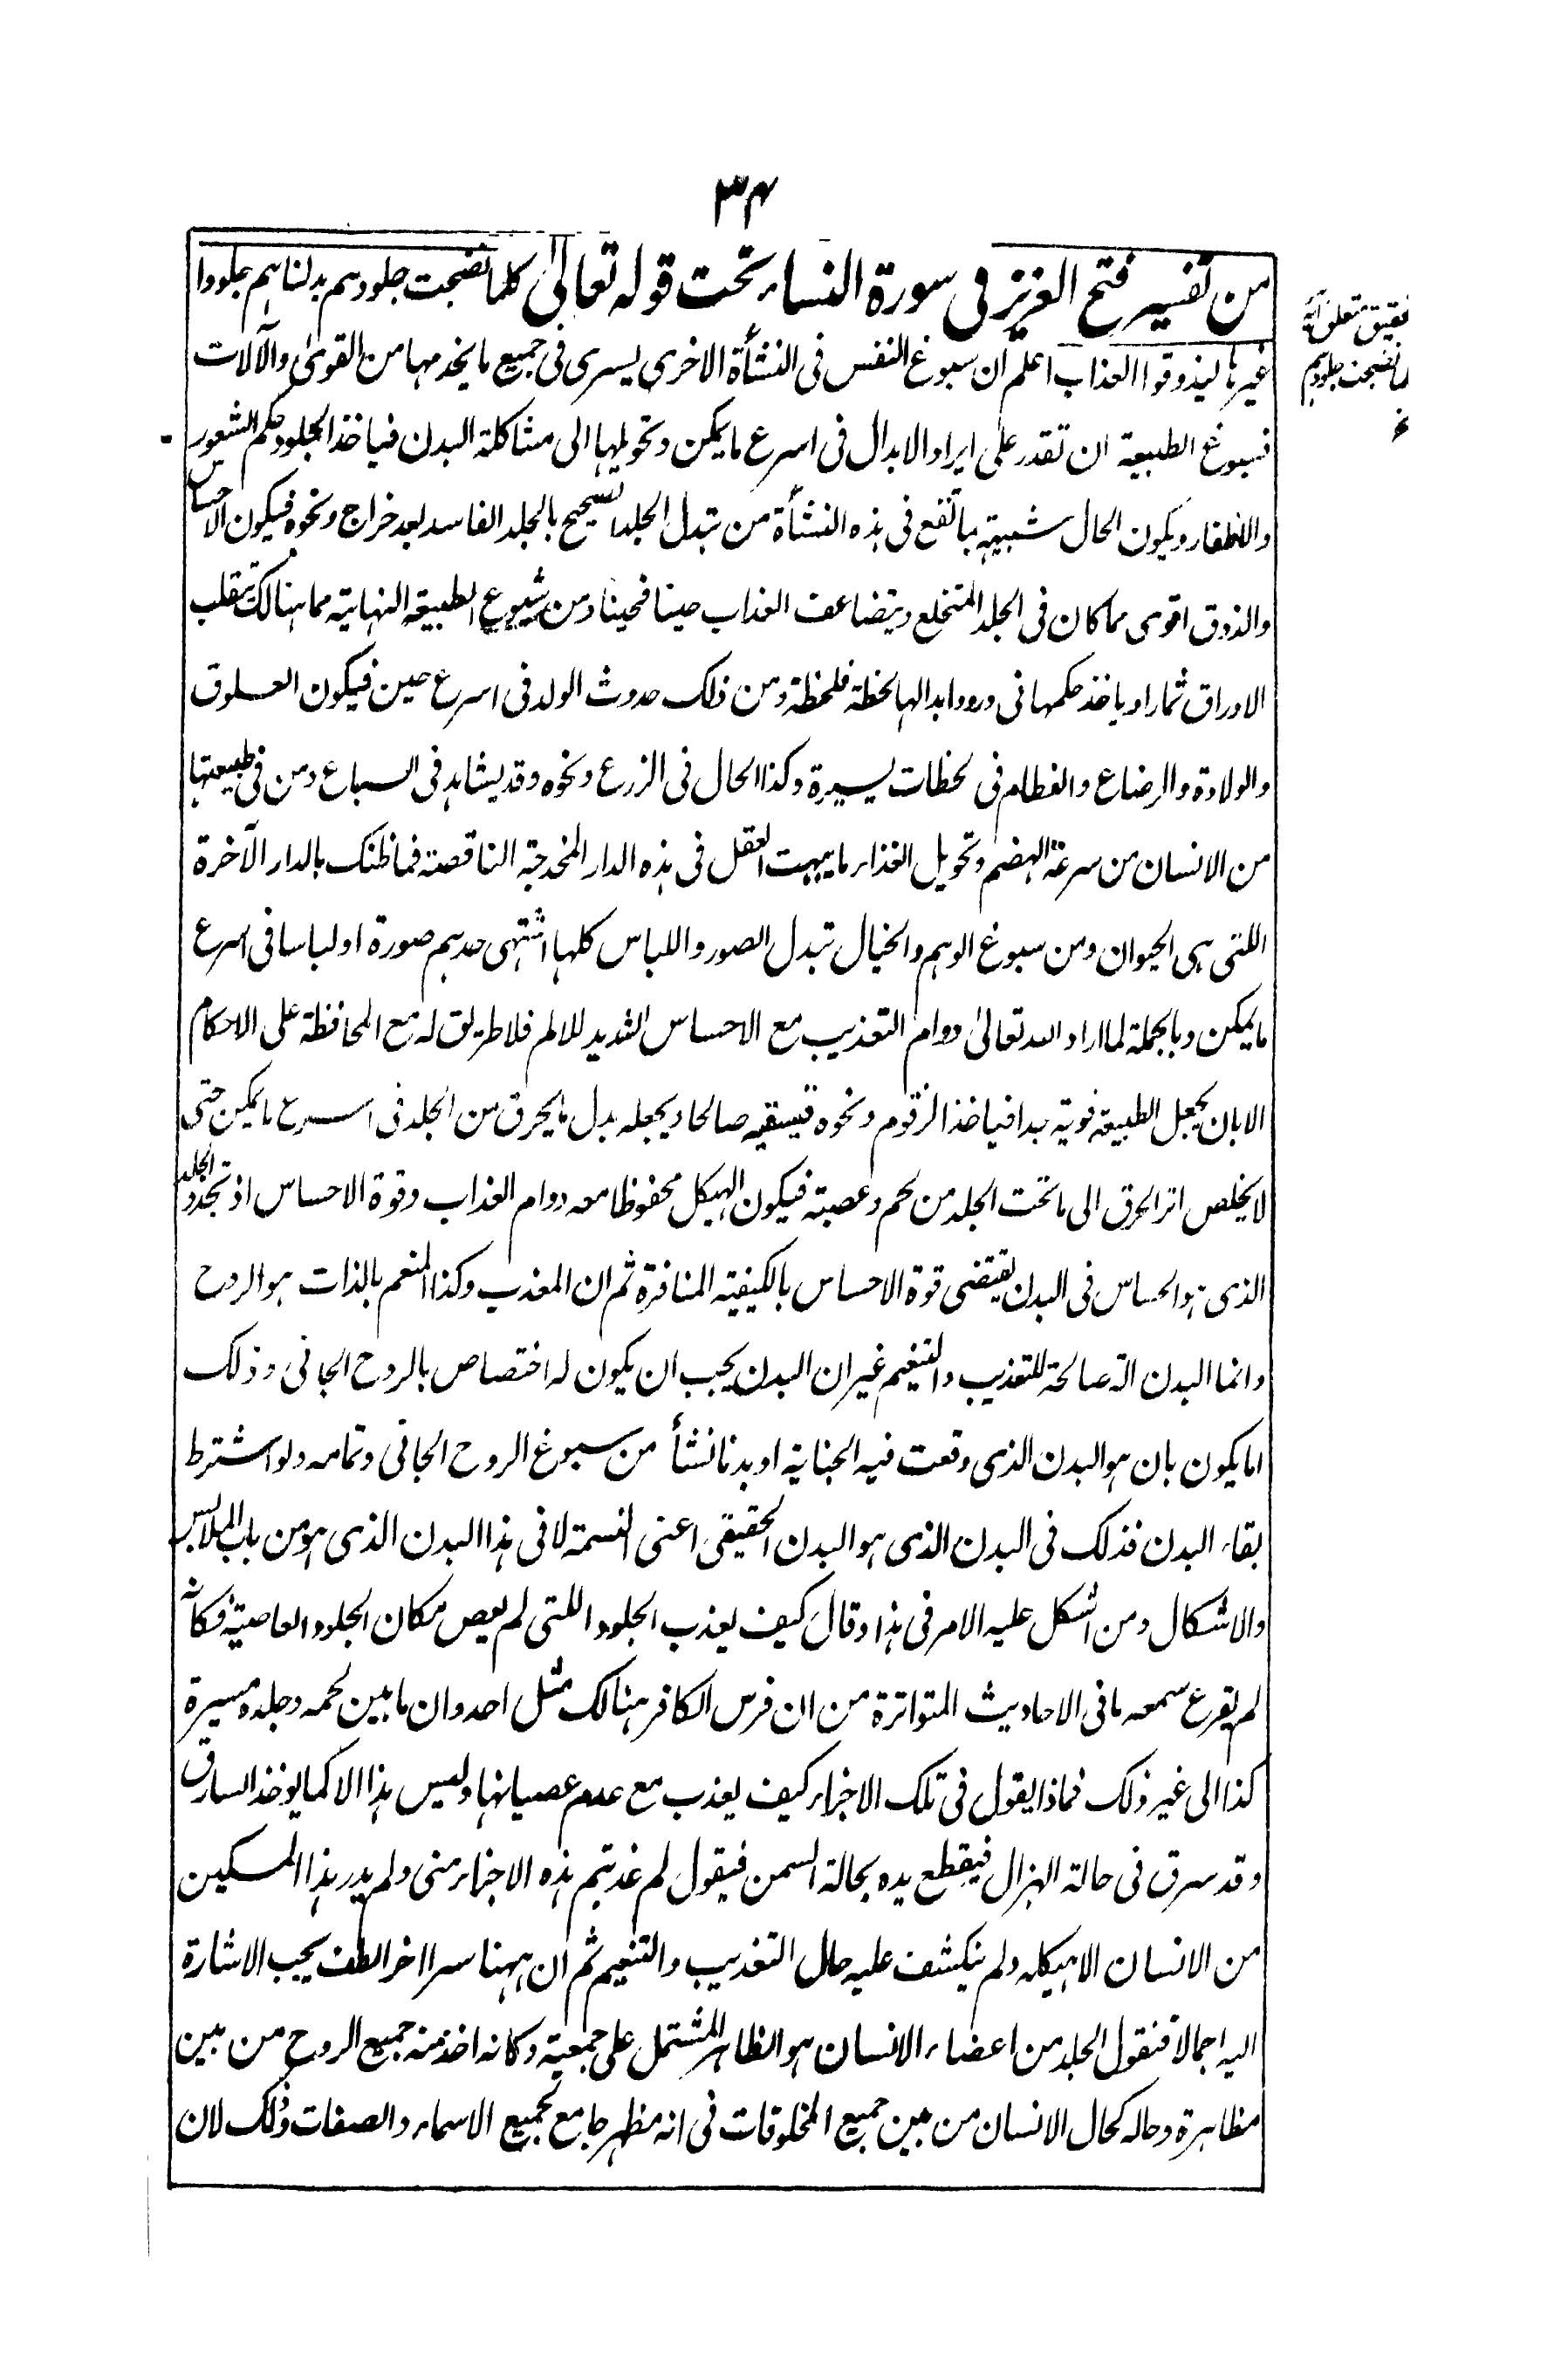 ۳۴
من تفسیر فتح العزیز فی سورة النساء تحت قوله تعالیٰ کلما نضجت جلودهم بدلناهم جلودا
غیرها لیذوقوا العذاب اعلم ان سبوغ النفس فی النشأة الاخری یسری فی جمیع ما یخدمها من القویٰ والآلات
فسبوغ الطبیعة ان تقدر علی ایراد الابدال فی اسرع ما یمکن وتحویلها الی مشاکلة البدن فیاخذ الجلود حکم الشعور
والاظفار ویکون الحال شبیهة بما تقع فی هذه النشأة من تبدل الجلد الصحیح بالجلد الفاسد بعد خراج ونحوه فیکون الاحساس
والذوق اقوی مما کان فی الجلد المتخلع ویتضاعف العذاب حینا فحینا ومن شیوع الطبیعة النهایة مما هنالک تنقلب
الاوراق ثمارا ویاخذ حکمها فی ورود ابدالها لحظة فلحظة ومن ذلک حدوث الولد فی اسرع حین فیکون العلوق
والولادة والرضاع والفطام فی لحظات یسیرة وکذا الحال فی الزرع ونحوه وقد یشاهد فی السباع ومن فی طبیعتها
من الانسان من سرعة الهضم وتحویل الغذاء ما یبهت العقل فی هذه الدار المخدجة الناقصة فما ظنک بالدار الآخرة
اللتی هی الحیوان ومن سبوغ الوهم والخیال تبدل الصور واللباس کلما اشتهی احدهم صورة او لباسا فی اسرع
ما یمکن وبالجملة لما اراد الله تعالیٰ دوام التعذیب مع الاحساس الشدید للالم فلا طریق له مع المحافظة علی الاحکام
الا بان یجعل الطبیعة قویة جدا فیاخذ الزقوم ونحوه فیسقیه صالحا ویجعله بدل ما یحرق من الجلد فی اسرع ما یمکن حتی
لا یخلص اثر الحرق الی ما تحت الجلد من لحم وعصبة فیکون الهیکل محفوظا معه دوام العذاب وقوة الاحساس اذ تجدد الجلد
الذی هو الحساس فی البدن یقتضی قوة الاحساس بالکیفیة المنافرة ثم ان المعذب وکذا المنعم بالذات هو الروح
وانما البدن آلة صالحة للتعذیب والتنعیم غیر ان البدن یجب ان یکون له اختصاص بالروح الجانی وذلک
اما یکون بان هو البدن الذی وقعت فیه الجنایة او بدنا نشأ من سبوغ الروح الجانی وتمامه ولو اشترط
بقاء البدن فذلک فی البدن الذی هو البدن الحقیقی اعنی النسمة لا فی هذا البدن الذی هو من باب الملابس
والاشکال ومن اشکل علیه الامر فی هذا وقال کیف یعذب الجلود اللتی لم یعص مکان الجلود العاصیة فکانه
لم یقرع سمعه ما فی الاحادیث المتواترة من ان ضرس الکافر هنالک مثل احد وان ما بین لحمه وجلده مسیرة
کذا الی غیر ذلک فماذا یقول فی تلک الاجزاء کیف یعذب مع عدم عصیانها ولیس هذا الا کما یوخذ السارق
وقد سرق فی حالة الهزال فیقطع یده بحالة السمن فیقول لم عذبتم هذه الاجزاء منی ولم یدر هذا المسکین
من الانسان الا هیکله ولم ینکشف علیه حال التعذیب والتنعیم ثم ان ههنا سرا اخر الطف یجب الاشارة
الیه اجمالا فنقول الجلد من اعضاء الانسان هو الظاهر المشتمل علی جمعیة وکانه اخذ منه جمیع الروح من بین
مظاهرة وحاله کحال الانسان من بین جمیع المخلوقات فی انه مظهر جامع لجمیع الاسماء والصفات وذلک لان
متعلق
نضجت جلودهم